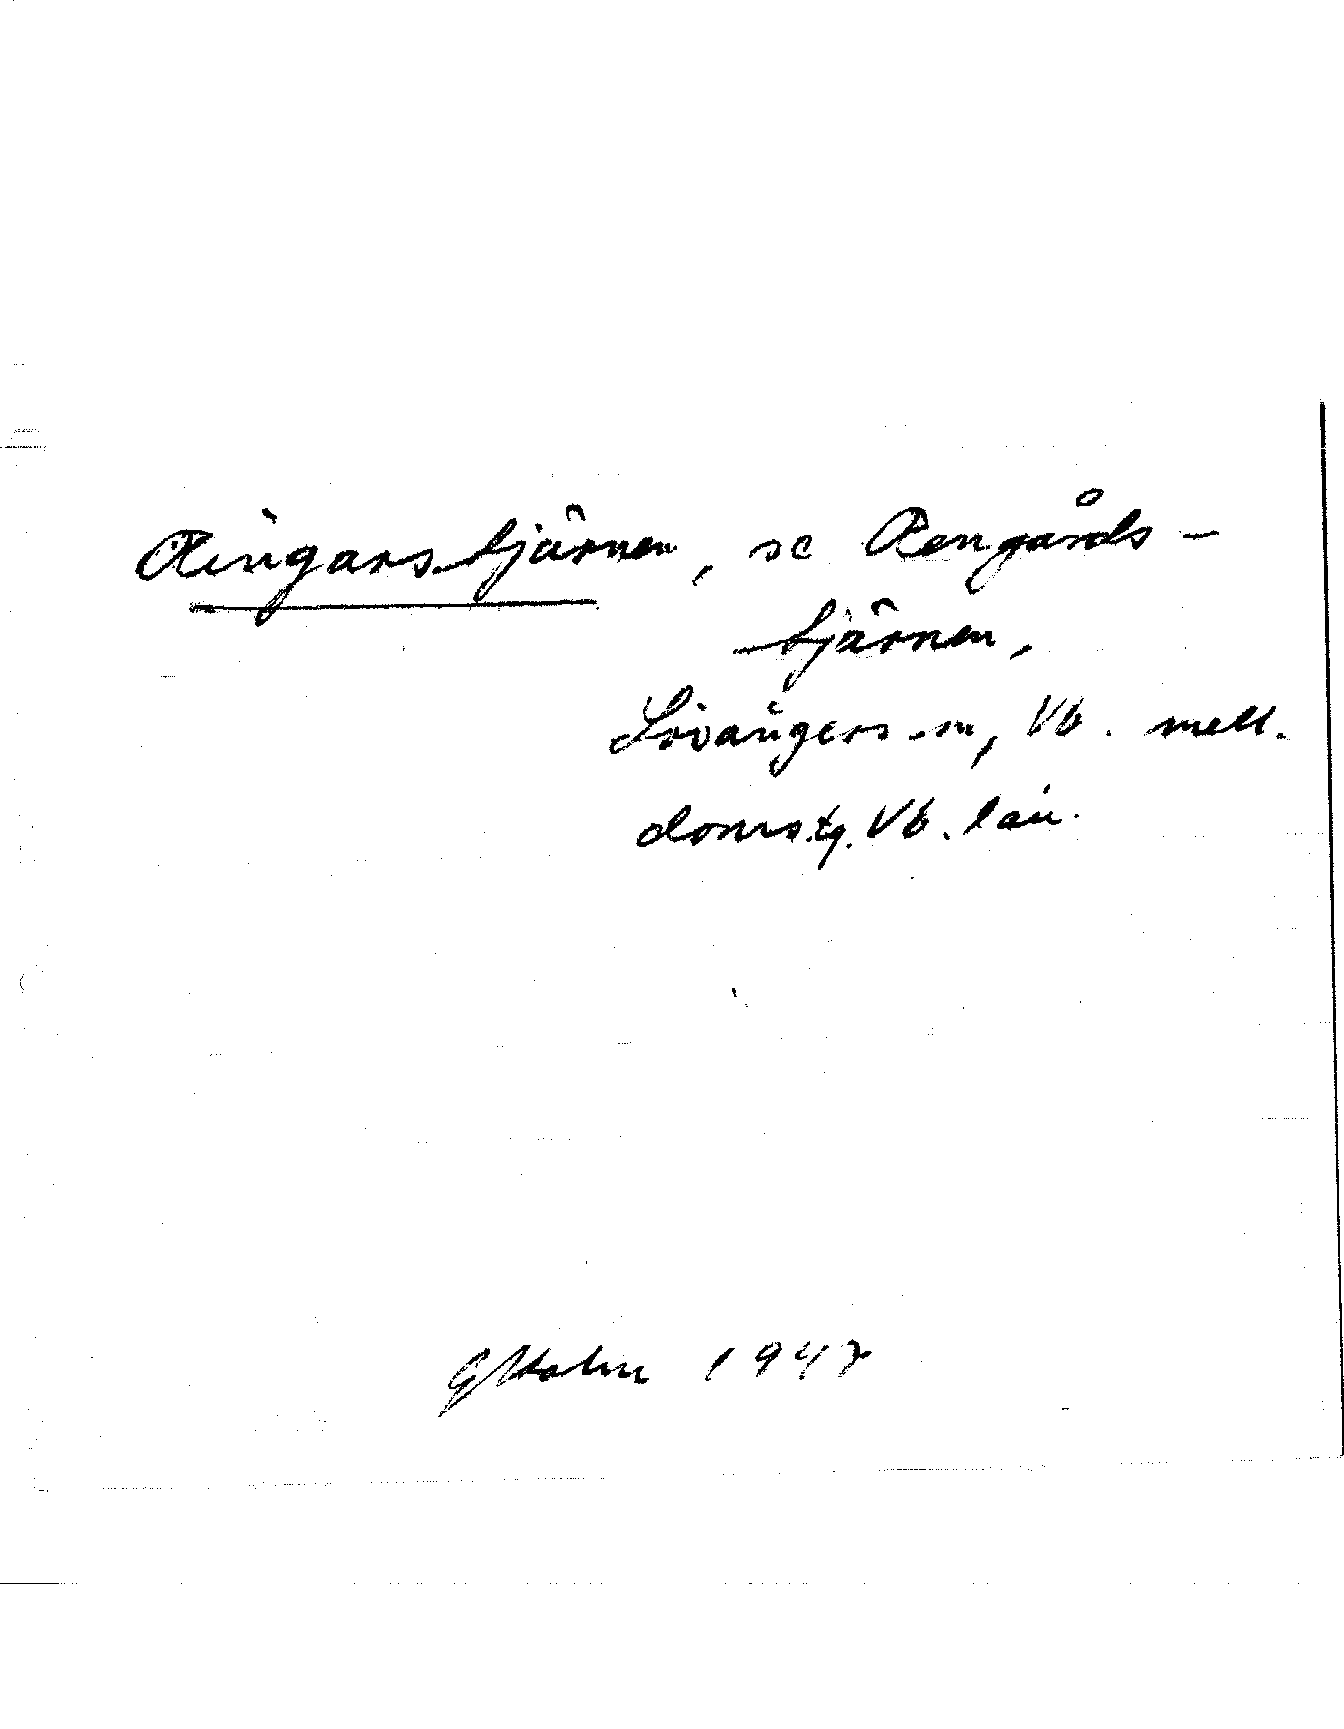 Ringarstjärnen, se Rengårds-
tjärnen,
Lövångers sn, Vb. mell.
domstg. Vb. län.
G Holm 1947